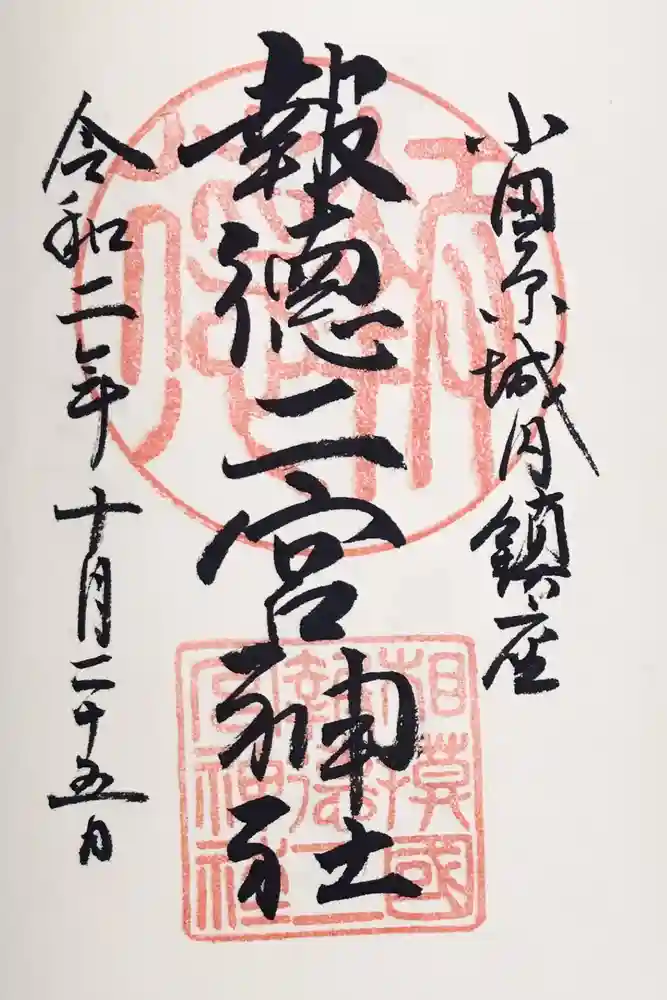 小田原城内鎮座
報徳二宮神社
令和二年十月二十五日
相模國
報徳二
宮神社